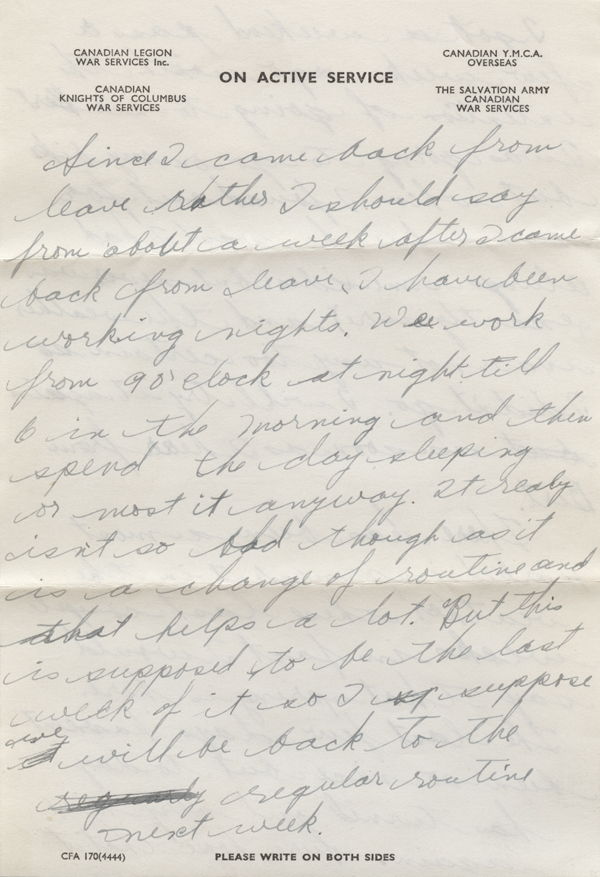 CANADIAN LEGION
WAR SERVICES Inc.
CANADIAN
KNIGHTS OF COLUMBUS
WAR SERVICES
ON ACTIVE SERVICE
CANADIAN Y.M.C.A.
OVERSEAS
THE SALVATION ARMY
CANADIAN
WAR SERVICES
Since I came back from
leave rather I should say
from about a week after I came
back from leave, I have been
working nights. We work
from 9 o'clock at night till
6 in the morning and then
spend the day sleeping
or most it anyway. It realy
isn't so bad though as it
is a change of routine and
that helps a lot. But this
is supposed to be the last
week of it so I suppose
we will be back to the
regular routine
next week.
CFA 170(4444)
PLEASE WRITE ON BOTH SIDES